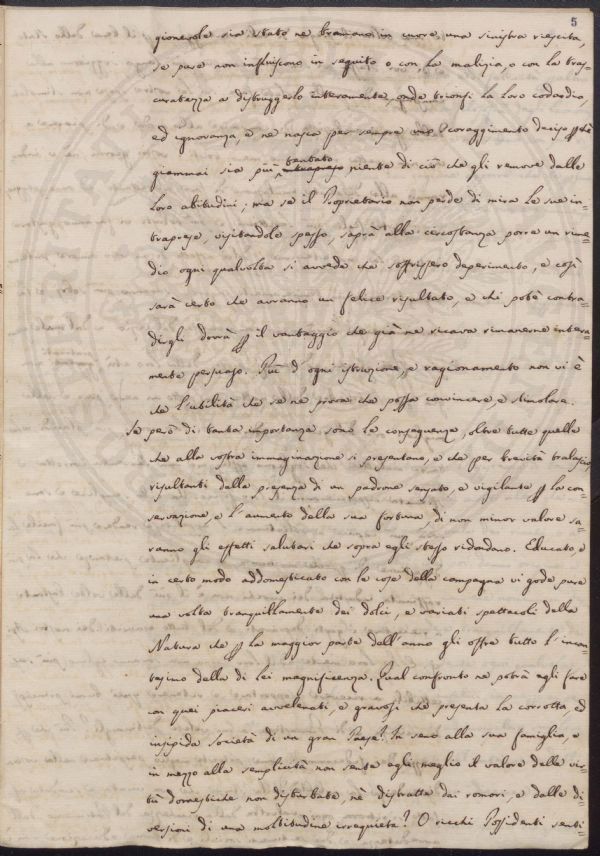 5
gionevole sia stato ne bramano in cuore una sinistra riescita,
se pure non influiscono in seguito o con la malizia, o con la tras-
curatezza a distruggerlo interamente, onde trionfi la loro codardia,
ed ignoranza, e ne nasca per sempre uno scoraggimento deciso
tentato
giammai sia più intrapreso niente di ciò che gli remove dalle
loro abitudini; ma se il Proprietario non perde di mira le sue in-
traprese, visitandole spesso, saprà alla circostanza porre un rime-
dio ogni qualvolta si avveda che soffrissero deperimento, e così
sarà certo che avranno un felice risultato, e chi potè contra-
dirgli dovrà p il vantaggio che già ne ricava rimanerne intera-
mente persuaso. Più d'ogni istruzione, e ragionamento non vi è
che l'utilità che se ne prova che possa convincere, e stimolare.
Se però di tanta importanza sono le conseguenze, oltre tutte quelle
che alla vostra immaginazione si presentano, e che per brevità tralascio
risultanti dalla presenza di un padrone sensato, e vigilante p la con-
servazione, e l'aumento della sua fortuna, di non minor valore sa-
ranno gli effetti salutari che sopra egli stesso ridondano. Educato, e
in certo modo addomesticato con le cose della campagna vi gode pure
una volta tranquillamente dei dolci, e variati spettacoli della
Natura che p la maggior parte dell'anno gli offre tutto l'incan-
tesimo della di lei magnificenza. Qual confronto ne potrà egli fare
con quei piaceri avvelenati, e gravosi che presenta la corrotta, ed
insipida società di un gran Paese? In seno alla sua famiglia, e
in mezzo alla semplicità non sente egli meglio il valore delle vir-
tù domestiche non disturbate, nè distratte dai romori, e dalle di-
versioni di una moltitudine irrequieta? O ricchi Possidenti senti-